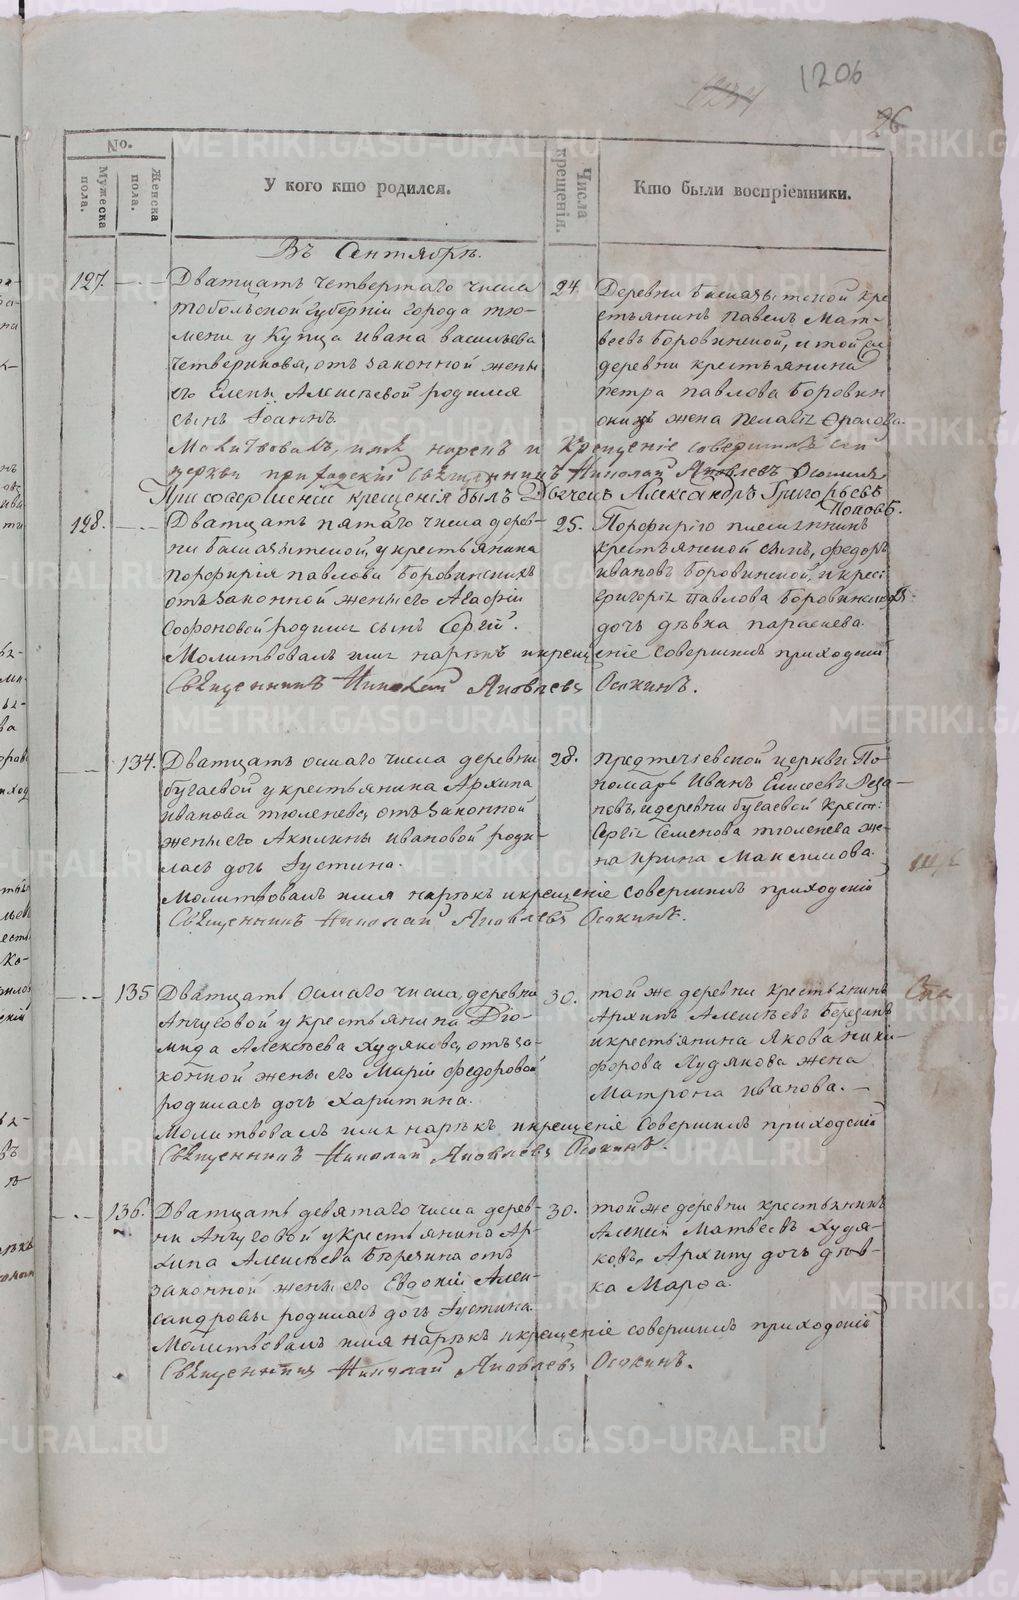 1206
26
No.
Мужеска пола.
Женска пола.
У кого кто родился.
Числа крещенія.
Кто были воспріемники.
Въ Сентябрѣ.
127. Дватцать четвертаго числа
тобольской губерніи города тю-
мени у купца ивана васильева
четверикова, отъ законной жены
его Елены Алексѣевой родился
сынъ Іоаннъ.
24. Деревни кре
стьянинъ павелъ Мат-
веевъ боровинской, и той же
деревни крестьянина
петра павлова боровин
скихъ жена пелагія
Молитвовалъ, имя нарекъ и крещеніе совершилъ сей
церкви приходскій священникъ Николай Яковлевъ Осокинъ
При совершеніи крещенія былъ Дьячекъ Александръ Григорьевъ
Поповъ.
128. Дватцать пятаго числа дерев-
ни у крестьянина
порфирія павлова боровинскихъ
отъ законной жены его Агафіи
Софоновой родился сынъ Сергій.
25. Порфирію племянникъ
крестьянской сынъ, федоръ
ивановъ боровинской, и крест:
григорія павлова боровинскихъ
дочь дѣвка параскева.
Молитвовалъ имя нарѣкъ и крещеніе совершилъ приходскій
Священникъ Николай Яковлевъ Осокинъ.
134. Дватцать осмаго числа деревни
бугаевой у крестьянина Архипа
иванова тюленева, отъ законной
жены его Акилины ивановой роди-
лась дочь Іустина.
28. предтечевской церкви По-
номарь Иванъ Елисеевъ
и деревни бугаевой крест:
Сергія Семенова тюленева же-
на ирина Максимова.
Молитвовалъ имя нарѣкъ и крещеніе совершилъ приходскій
Священникъ Николай Яковлевъ Осокинъ.
135 Дватцать осмаго числа, деревни
Анчуговой у крестьянина Діо-
мида Алексѣева Худякова, отъ за-
конной жены его Маріи федоровой
родилась дочь Харитина.
30. той же деревни крестьянинъ
Архипъ Алексѣевъ Березинъ
и крестьянина Якова ники-
форова Худякова жена
Матрона иванова.
Молитвовалъ имя нарѣкъ и крещенія совершилъ приходскій
Священникъ Николай Яковлевъ Осокинъ.
136. Дватцать девятаго числа дерев-
ни Анчуговой у крестьянина Ар-
хипа Алексѣева Березина отъ
законной жены его Евдокіи Алек-
сандровы родилась дочь Іустина.
30. той же деревни крестьянинъ
Алексій Матвеевъ Худя-
ковъ, Архипу дочь дѣв-
ка Марфа.
Молитвовалъ имя нарѣкъ и крещеніе совершилъ приходскій
Священникъ Николай Яковлевъ Осокинъ.
METRIKI.GASO-URAL.RU